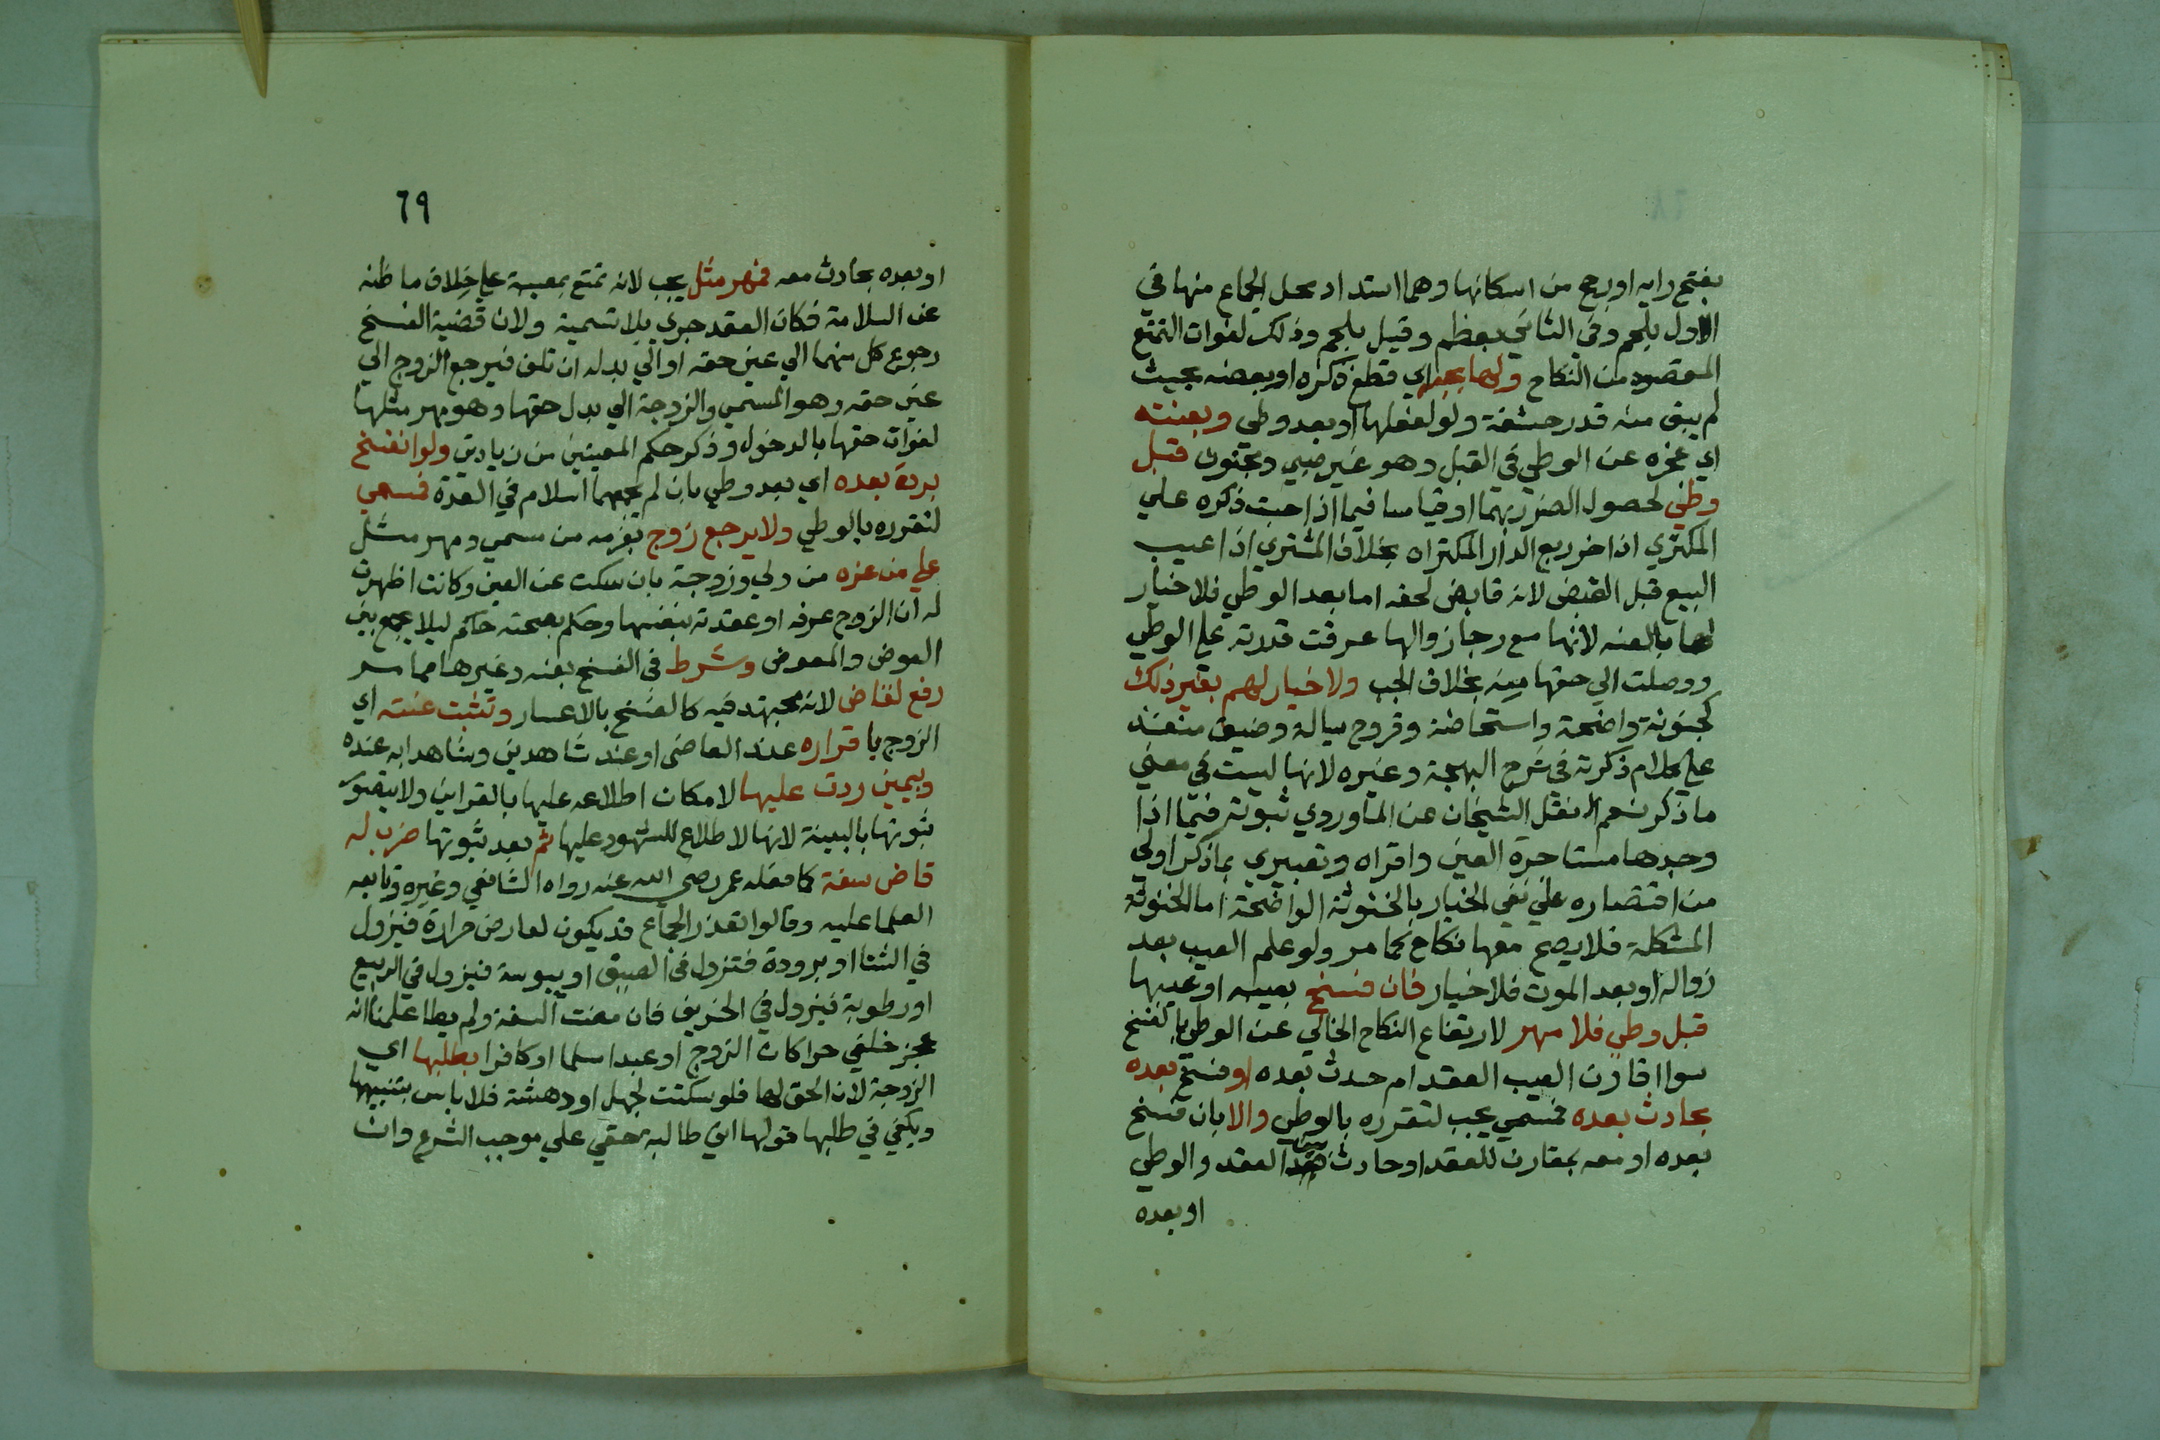 بفتح رايه اورجح من اسكانها وهما انسداد محل الجماع منها في
الاول بلحم وفي الثاني بعظم وقيل بلحم وذلك لفوات التمتع
المقصود من النكاح ولها بجبه اي قطع ذكره او بعضه بحيث
لم يبق منه قدر حشفة ولو بفعلها او بعد وطي وبعنته
اي عجزه عن الوطي في القبل وهو غير صبي ومجنون قبل
وطي لحصول الضرر بهما وقياسا فيما اذا جبت ذكره علي
المكتري اذا خرب الدار المكتراه بخلاف المشتري اذا عيب
البيع قبل القبض لانه قابض لحقه اما بعد الوطي فلا خيار
لها بالعنه لانها مع رجا زوالها عرفت قدرته علي الوطي
ووصلت الي حقها منه بخلاف الجب ولا خيار لهم بغير ذلك
كخنوثة واضحة واستحاضة وقروح سيالة وضيق منفذ
علي كلام ذكرته في شرح البهجة وغيره لانها ليست في معني
ما ذكر نعم نقل الشيخان عن الماوردي ثبوته فيما اذا
وجدها مستاجرة العين واقراه وتعبيري بما ذكر اولي
من اقتصاره علي نفي الخيار بالخنوثة الواضحة اما الخنوثة
المشكلة فلا يصح معها نكاح كما مر ولو علم العيب بعد
زواله او بعد الموت فلا خيار فان فسخ بعيبه او عيبها
قبل وطي فلا مهر لارتفاع النكاح الخالي عن الوطي بالفسخ
سوا اقارن العيب العقد ام حدث بعده او فسخ بعده
بحادث بعده فمسمي يجب لتقرره بالوطي والا بان فسخ
بعده او معه بمقارن للعقد او حادث بين العقد والوطي
او بعده
٦٩
او بعده بحادث معه فمهر مثل يجب لانه تمتع بمعيبة علي خلاف ما ظنه
من السلامة فكان العقد جري بلا تسمية ولان قضية الفسخ
رجوع كل منهما الي عين حقه او الي بدله ان تلف فيرجع الزوج الي
عين حقه وهو المسمي والزوجة الي بدل حقها وهو مهر مثلها
لفوات حقها بالدخول وذكر حكم المعيتين من زيادتي ولو انفسخ
بردة بعده اي بعد وطي بان لم يجمعهما اسلام في العدة فمسمي
لتقرره بالوطي ولا يرجع زوج بغرمه من مسمي ومهر مثل
علي من غره من ولي وزوجة بان سكت عن العيب وكانت اظهرت
له ان الزوج عرفه او عقدته بنفسها وحكم بصحته حاكم ليلا يجمع بين
العوض والمعوض وشرط في الفسخ بعنه وغيرها مما مر
رفع لقاض لانه مجتهد فيه كالفسخ بالاعسار وتثبت عنته اي
الزوج باقراره عند القاضي او عند شاهدين وشاهدا به عنده
وبيمين ردت عليها لامكان اطلاعه عليها بالقراين ولا يتصور
ثبوتها بالبينة لانها لا اطلاع للشهود عليها ثم بعد ثبوتها ضرب له
قاض سنة كما فعله عمر رضي الله عنه رواه الشافعي وغيره وتابعه
العلما عليه وقالوا تعذر الجماع قد يكون لعارض حرارة فيزول
في الشتا او برودة فتزول في الصيف او يبوسة فيزول في الربيع
او رطوبة فيزول في الخريف فان مضت السنة ولم يطا علمنا انه
عجز خلقي حرا كان الزوج او عبدا مسلما او كافرا بطلبها اي
الزوجة لان الحق لها فلو سكتت لجهل او دهشة فلا باس بتنبيهها
ويكفي في طلبها قولها اني طالبه بحقي علي موجب الشرع وان